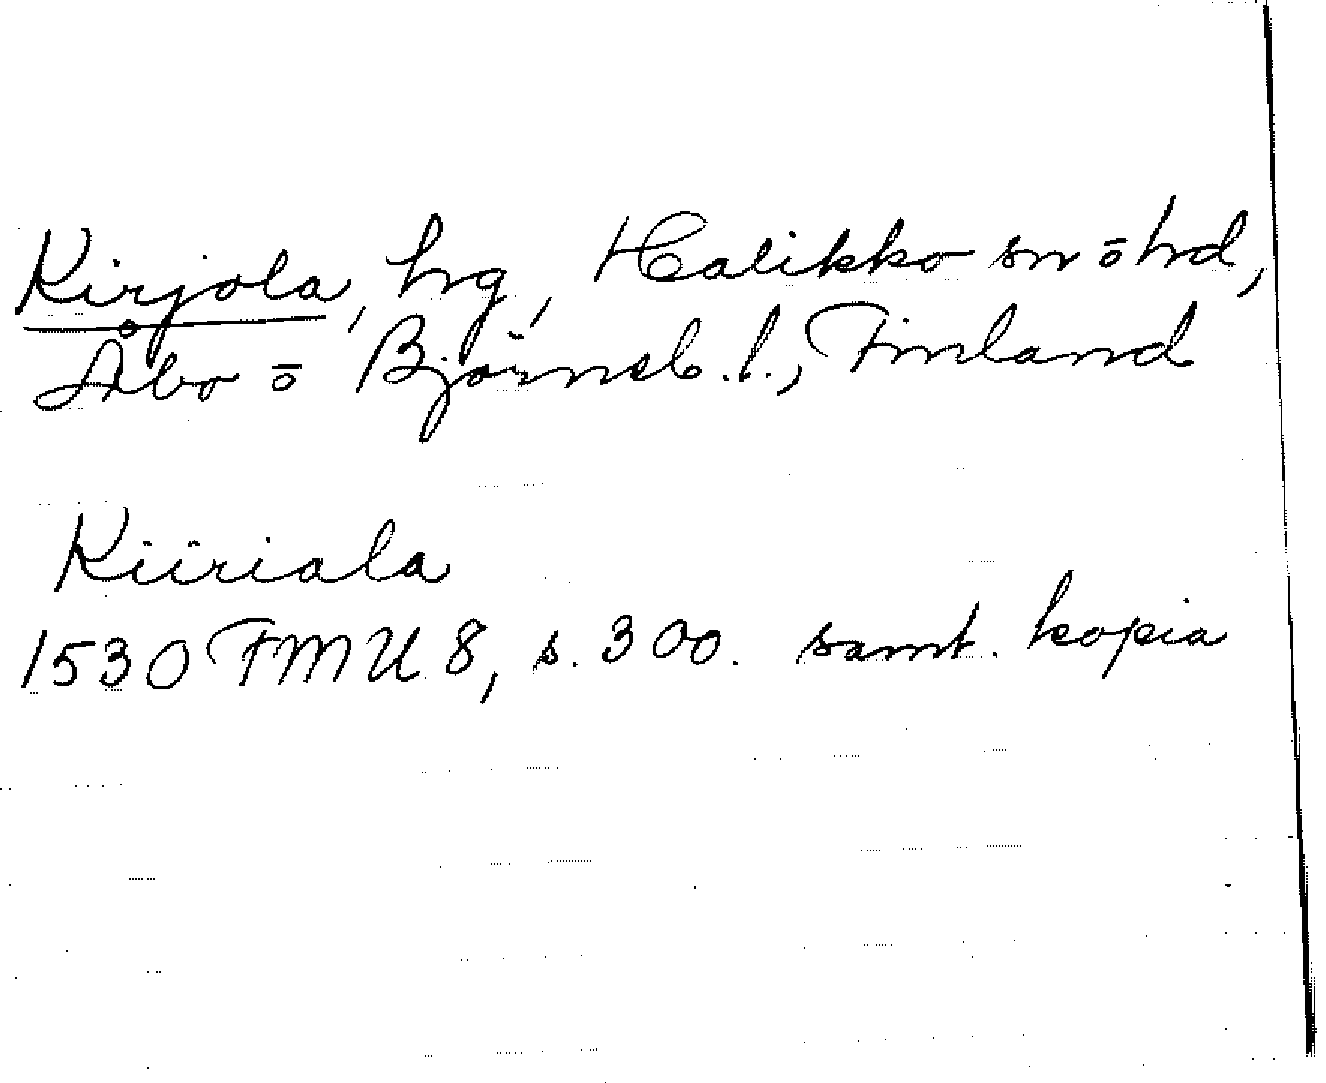 Kirjola, hg, Halikko sn ō hd,
Åbo ō Björneb. l., Finland
Kiiriala
1530 FMU 8, s. 300. samt. kopia